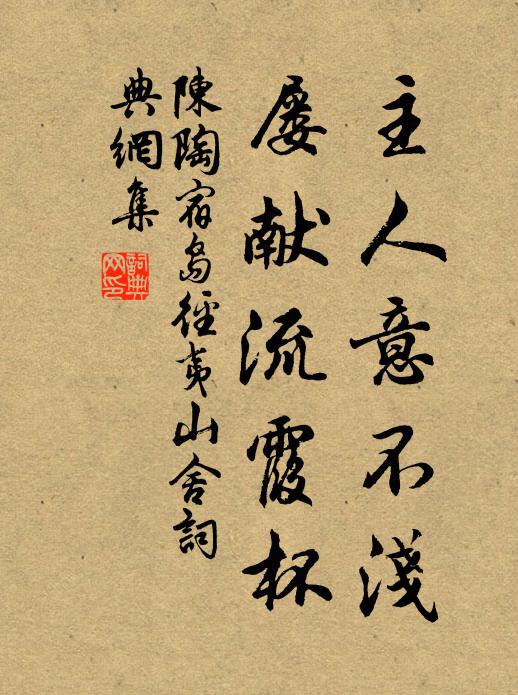 主人意不淺
屡献流霞杯
陳陶宿島徑夷山舍詞
典網集
詞典網印